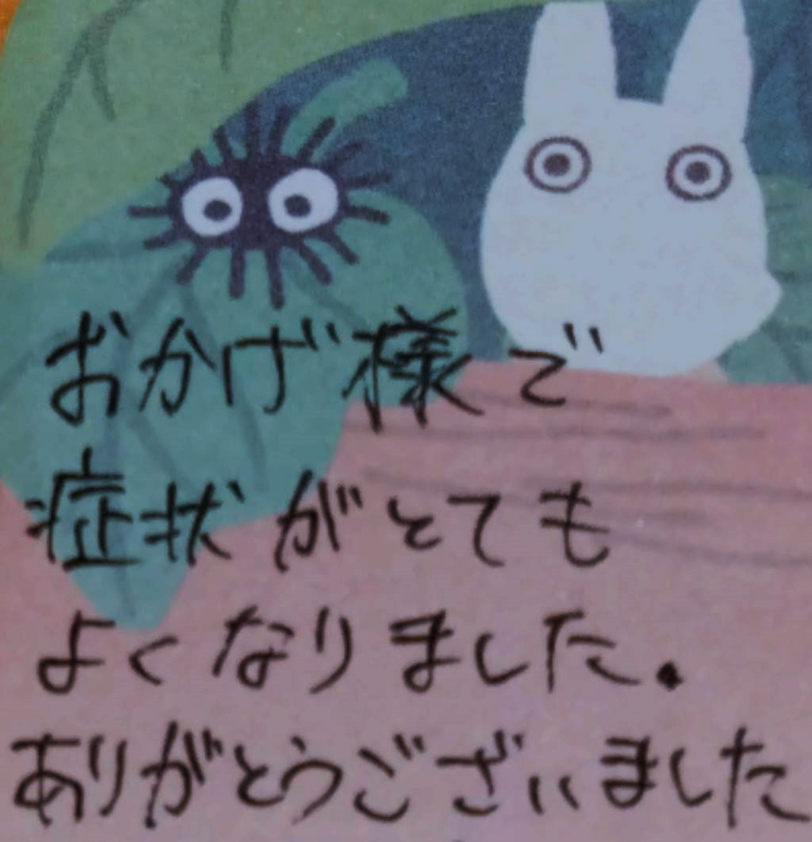 おかげ様で
症状がとても
よくなりました.
ありがとうございました